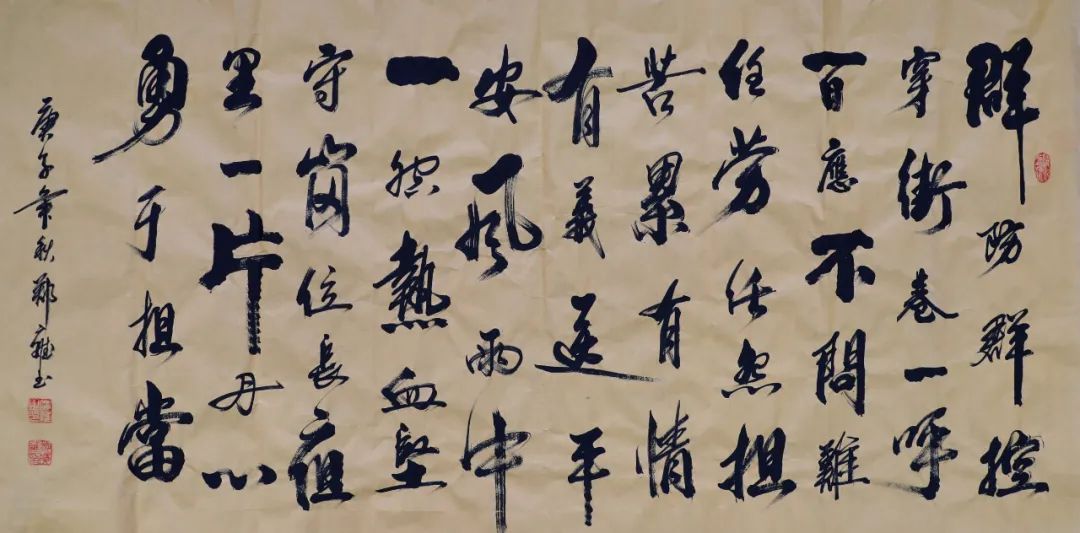 群防群控
穿街巷一呼
百應不問難
任劳任怨担
苦累有情
有義送平
安風雨中
一腔熱血堅
守崗位長
里一片丹心
勇于担當
庚子年秋鄭